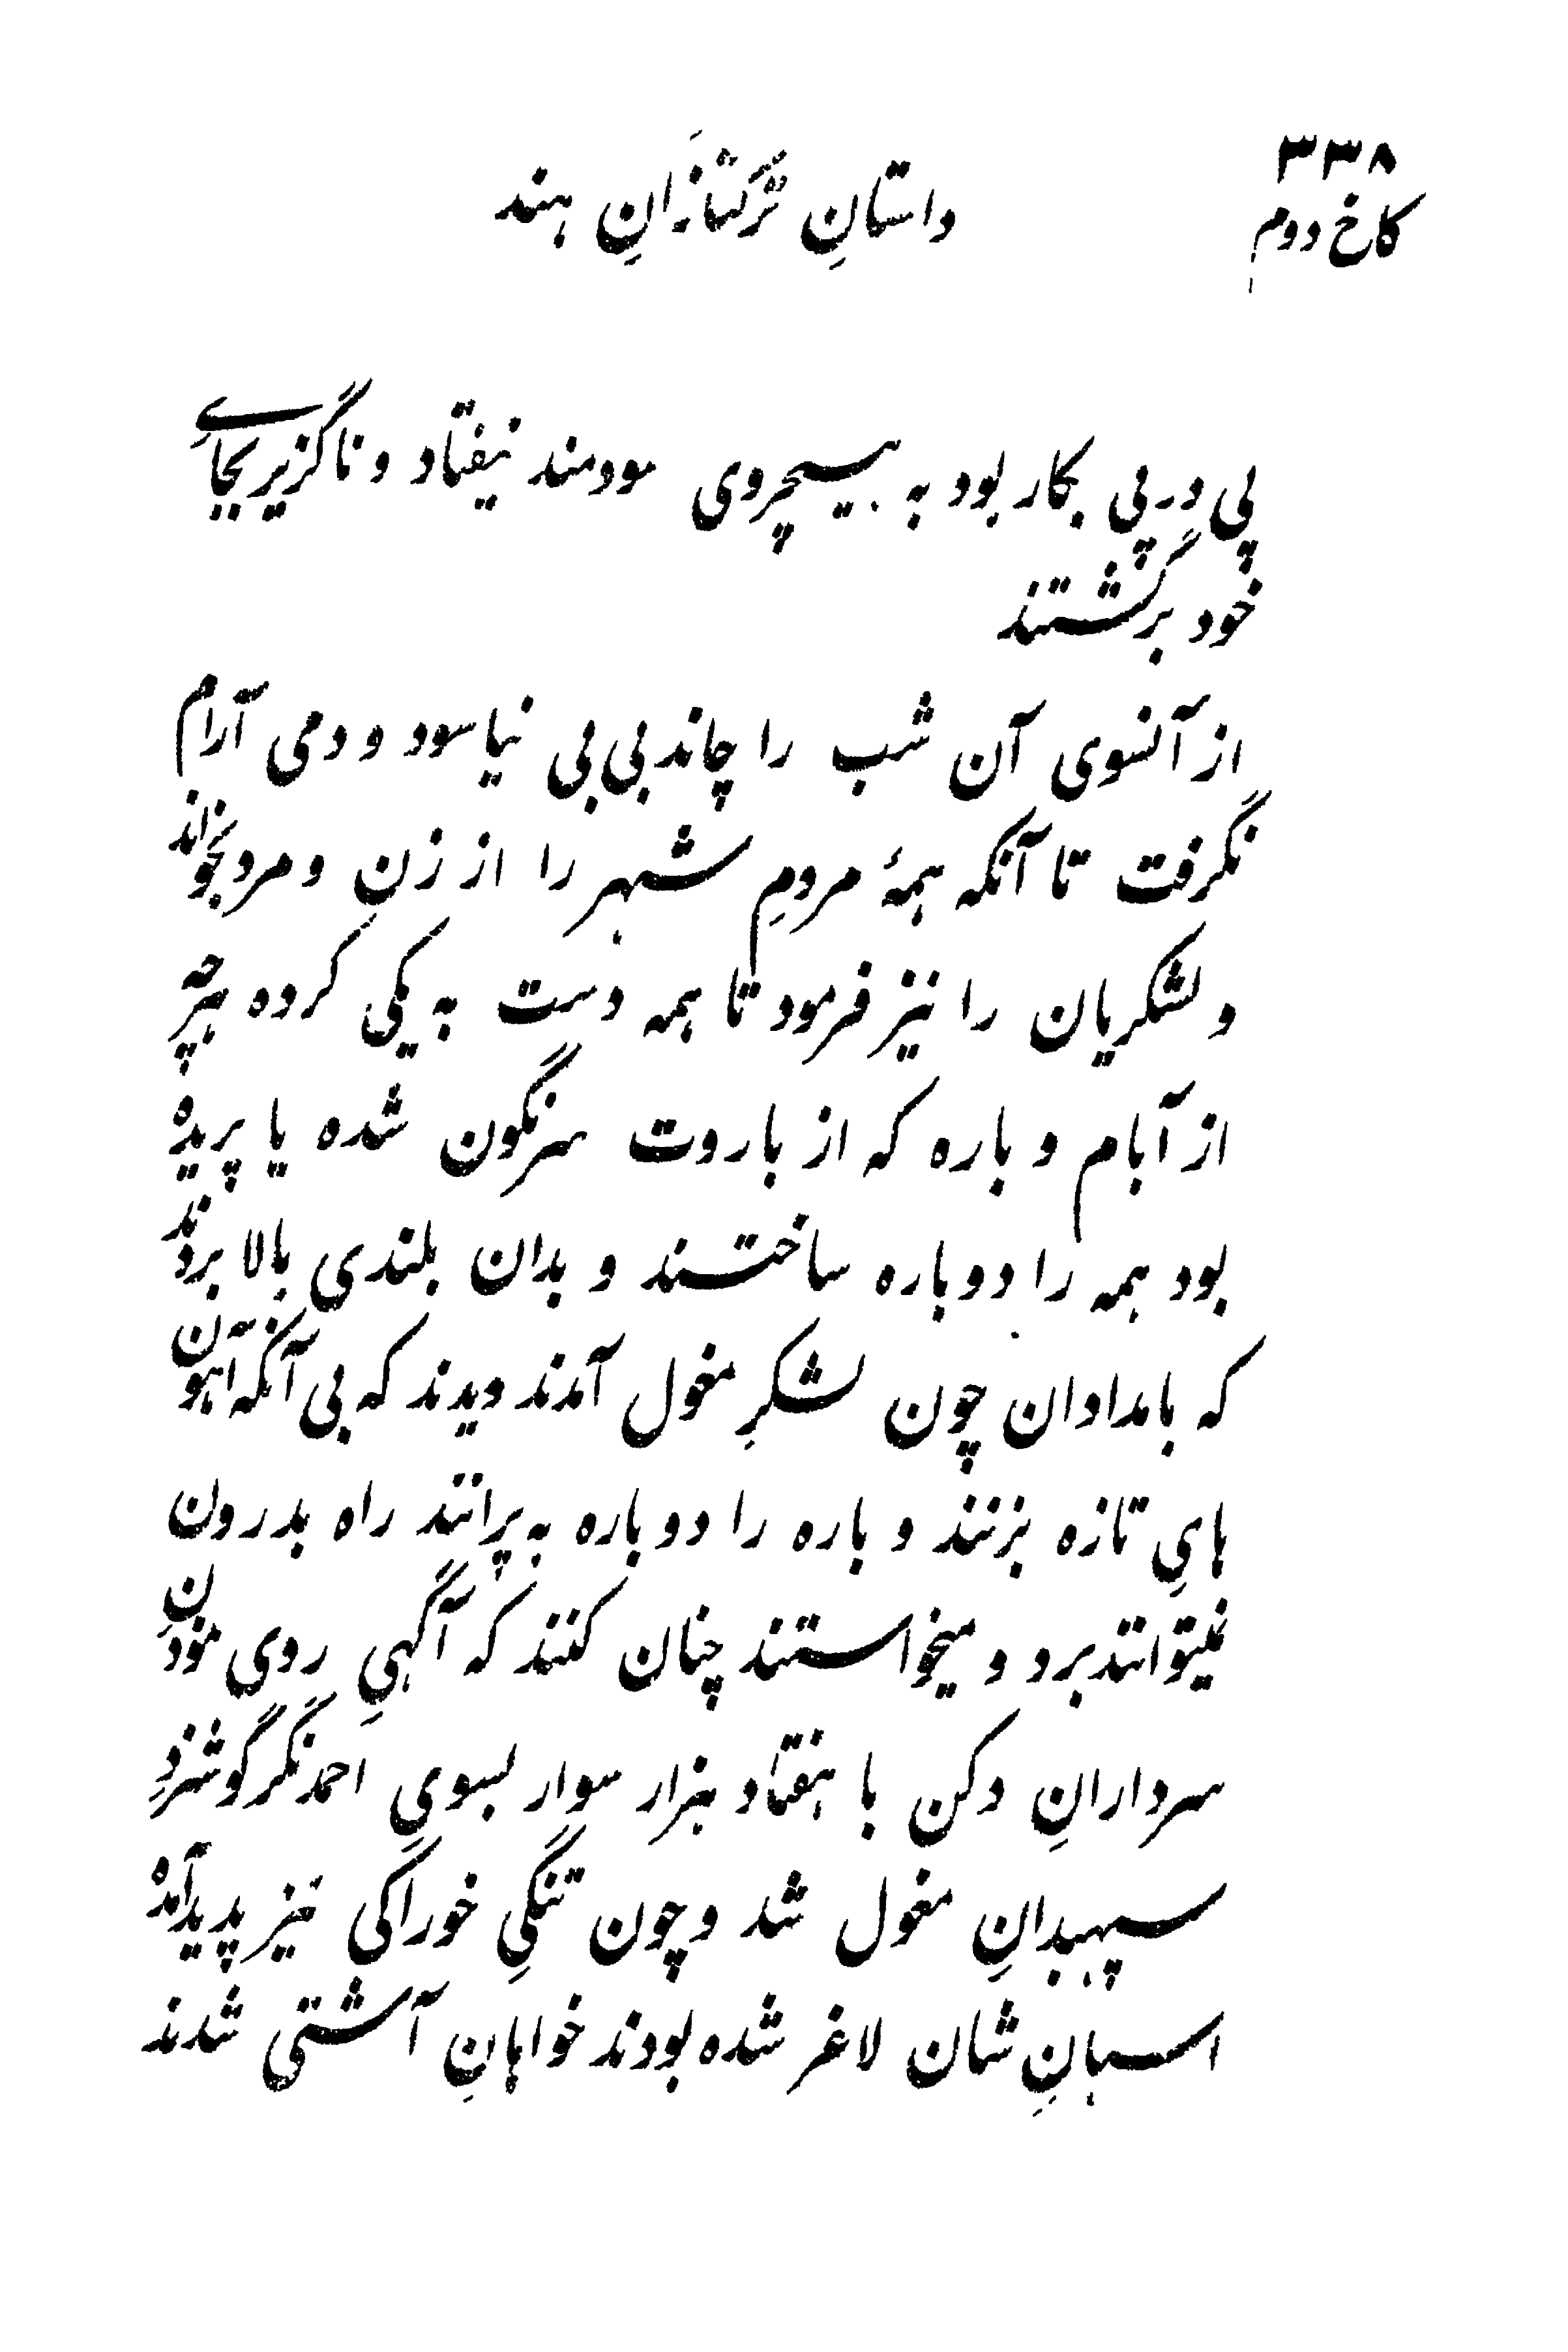 ۳۳۸
کاخ دوم
داستانِ تُرکتازانِ هند
پی در پی بکار بود به هیچروی سودمند نیفتاد و ناگزیر بجایِ
خود برگشتند
از آنسوی آن شب را چاند بی‌بی نیاسود و دمی آرام
نگرفت تا آنکه همهٔ مردمِ شهر را از زن و مرد بخواند
و لشکریان را نیز فرمود تا همه دست به یکی کرده هرچه
از آبام و باره که از باروت سرنگون شده یا پریده
بود همه را دوباره ساختند و بدان بلندی بالا بردند
که بامدادان چون لشکرِ مغول آمدند دیدند که بی آنکه آهون
هایِ تازه بزنند و باره را دوباره به پرانند راه بدرون
نمیتوانند برد و میخواستند چنان کنند که آگهیِ روی نمودنِ
سردارانِ دکن با هفتاد هزار سوار بسویِ احمدنگر گوشزدِ
سپهبدانِ مغول شد و چون تنگیِ خوراکی نیز پدید آمده
اسپانِ شان لاغر شده بودند خواهانِ آشتی شدند